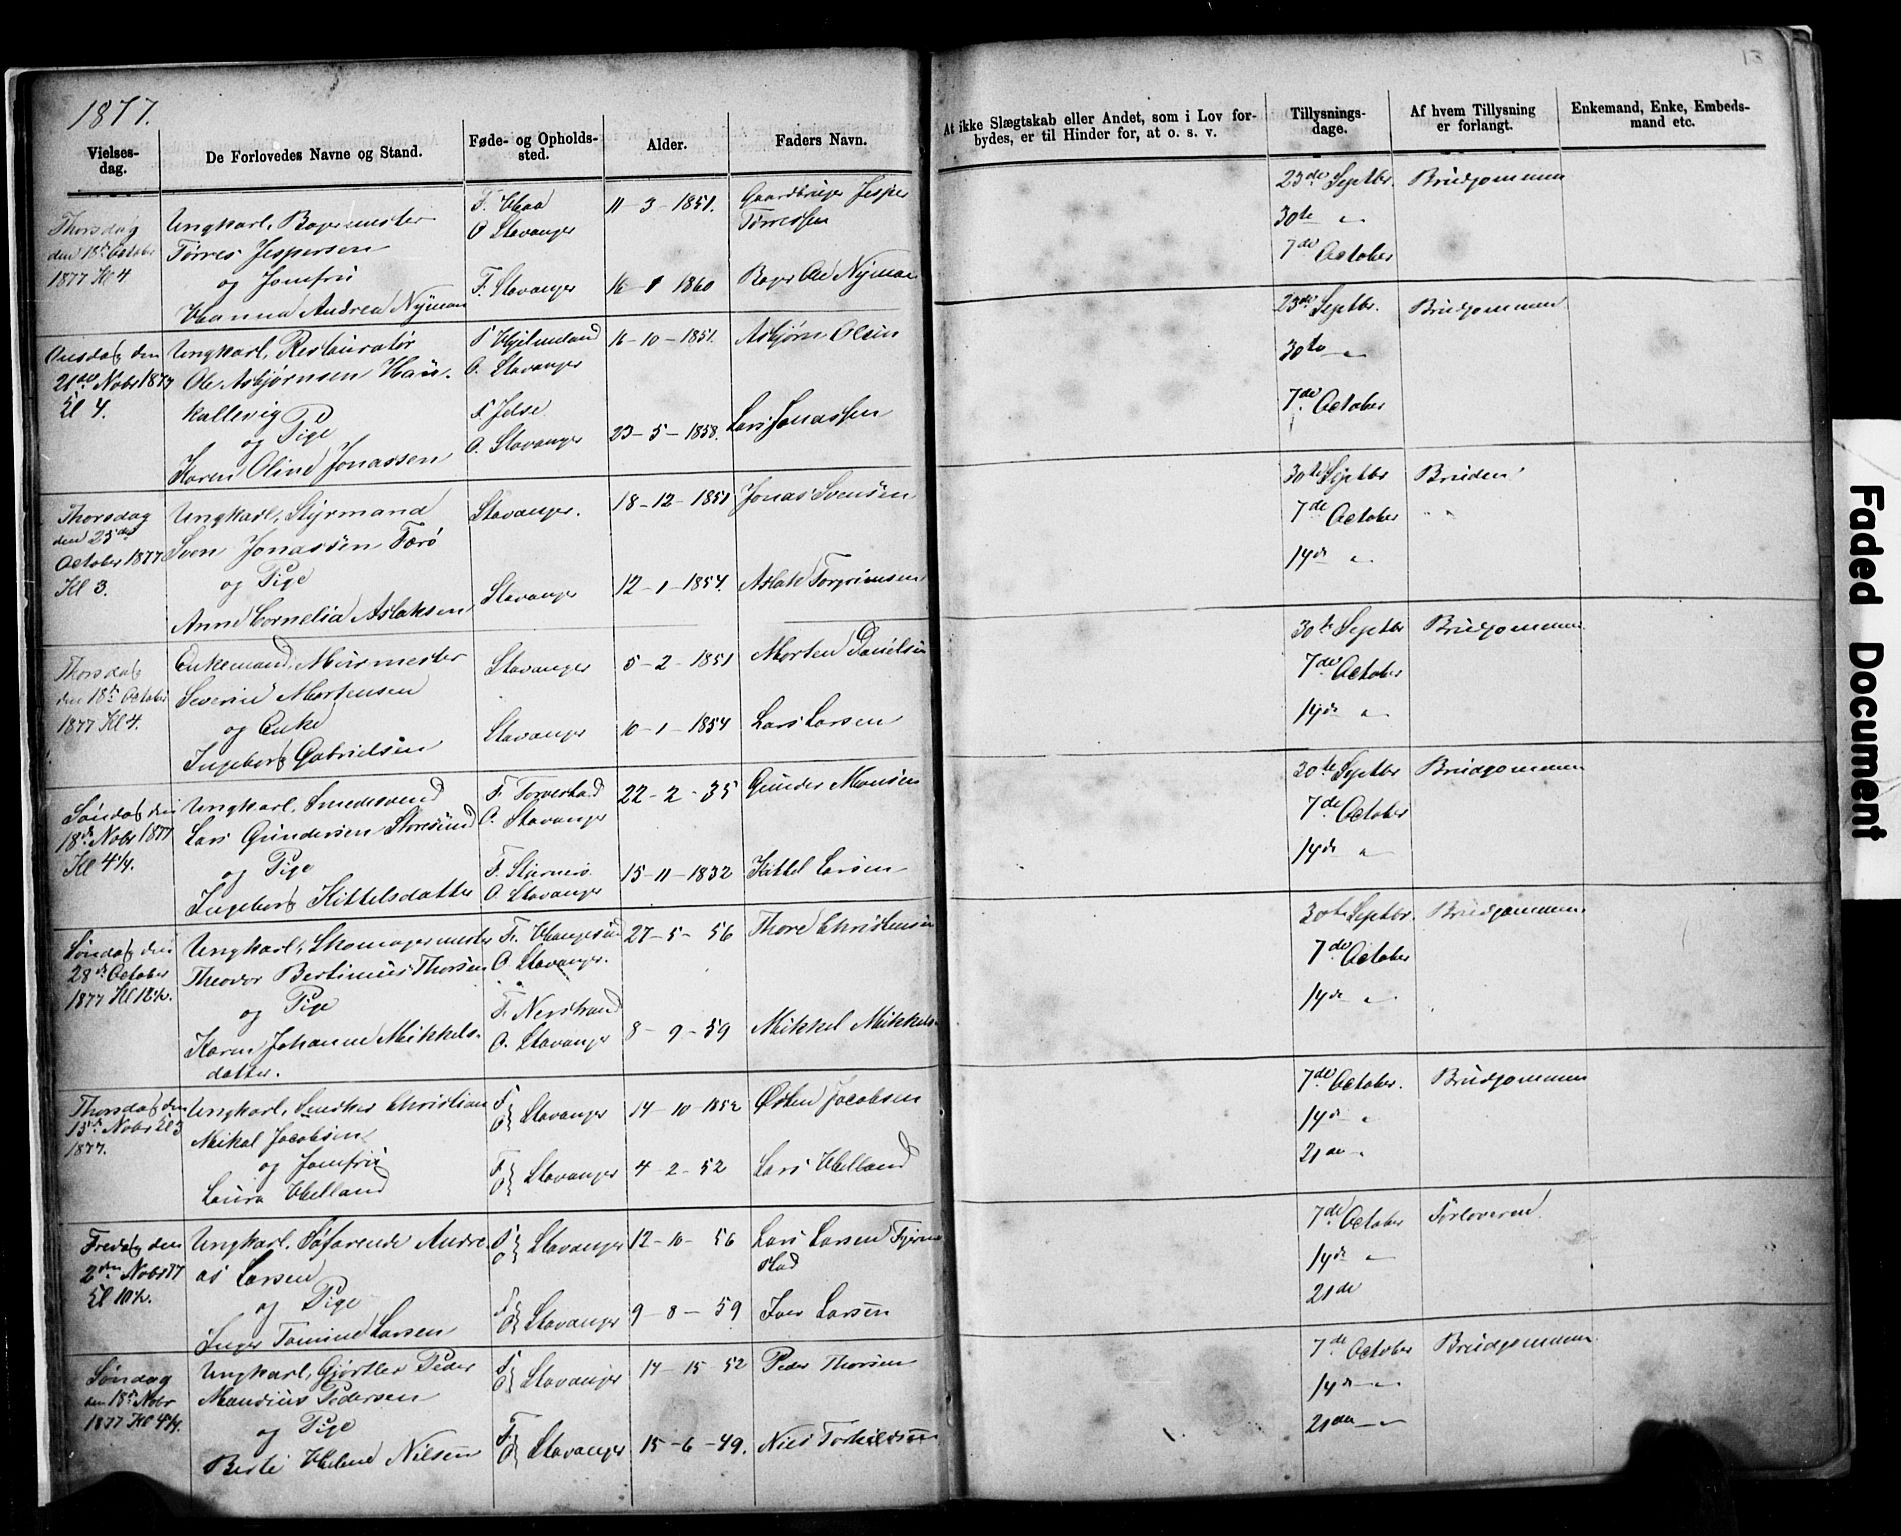 1877.
13
Vielses-
dag.
De Forlovedes Navne og Stand.
Føde- og Opholds-
sted.
Alder.
Faders Navn.
At ikke Slægtskab eller Andet, som i Lov for-
bydes, er til Hinder for, at o. s. v.
Tillysnings-
dage.
Af hvem Tillysning
er forlangt.
Enkemand, Enke, Embeds-
mand etc.
Thorsdag
den 18de October
1877 Kl 4.
Ungkarl, Bagermester
Tørres Jespersen
og Jomfru
Hanna Andrea Nyman
F. Haa
O Stavanger
F. Stavanger
11-3-1851.
16-1 1860
Gaardbruger Jesper
Tørressen
Bager Ole Nyman
23de Septbr.
30te "
7de October
Brudgommen
Onsdag den
21de Nobr 1877
Kl 4.
Ungkarl, Restauratør
Ole Asbjørnsen Hau-
kallevig
og Pige
Karen Oline Jonassen
F Hjelmeland
O. Stavanger
F Jelse
O. Stavanger
16-10-1851.
23-5-1858.
Asbjørn Olsen
Lars Jonassen
23de Septbr.
30te "
7de October
Brudgommen
Thorsdag
den 25de
October 1877
Kl 3.
Ungkarl, Styrmand
Sven Jonassen Færø
og Pige
Anne Cornelia Aslaksen
Stavanger.
Stavanger
18-12-1851
12-1-1854.
Jonas Svensen
Aslak Torgrimsen
30te Septbr
7de October
14de "
Bruden
" "
Thorsdag
den 18de October
1877 Kl 4.
Enkemand, Murmester
Severin Mortensen
og Enke
Ingeborg Gabrielsen
Stavanger
Stavanger
5-2-1851
10-1-1854
Morten Danielsen
Lars Larsen
30te Septbr
7de October
14de "
Brudgommen
Søndag den
18de Nobr 1877
Kl 4¼.
Ungkarl, Smedesvend
Lars Gundersen Storesund
og Pige
Ingeborg Kittelsdatter
F. Torvestad
O. Stavanger
F. Stjernerø
O. Stavanger
22-2-35
15-11-1832
Gunder Monsen
Kittel Larsen
30te Septbr
7de October
14de "
Brudgommen
Søndag den
28de October
1877 Kl 12½.
Ungkarl, Skomagermester
Theodor Bertinius Thorsen
og Pige
Karen Johanne Mikkels-
datter.
F. Haugesund
O Stavanger.
F. Nerstrand
O. Stavanger
27-5-56
8-9-59
Thore Christensen
Mikkel Mikkels-
30te Septbr.
7de October
14de "
Brudgommen
Thorsdag den
15de Nobr Kl 3
1877.
Ungkarl, Snedker Christian
Mikal Jacobsen
og Jomfru
Laura Helland
F
O } Stavanger
F
O } Stavanger
14-10 1852
4-2-52
Østen Jacobsen
Lars Helland
7de October.
14de "
21de "
Brudgommen
Fredag den
2den Nobr 77
Kl 10½.
Ungkarl, Søfarende Andre-
as Larsen
og Pige
Inger Tomine Larsen
F
O } Stavanger
F
O } Stavanger
12-10-56
9-8-59
Lars Larsen Fjerme-
stad
Iver Larsen
7de October
14de "
21de
Forloveren.
Søndag
den 18de Nobr
1877 Kl 4¼.
Ungkarl, Gjørtler Peder
Mandius Pedersen
og Pige
Berte Helene Nilsen
F
O } Stavanger
F
O } Stavanger
14-15-52
15-6-49.
Peder Thorsen
Niels Torkildsen
7de October
14de "
21de "
Brudgommen
Faded Document